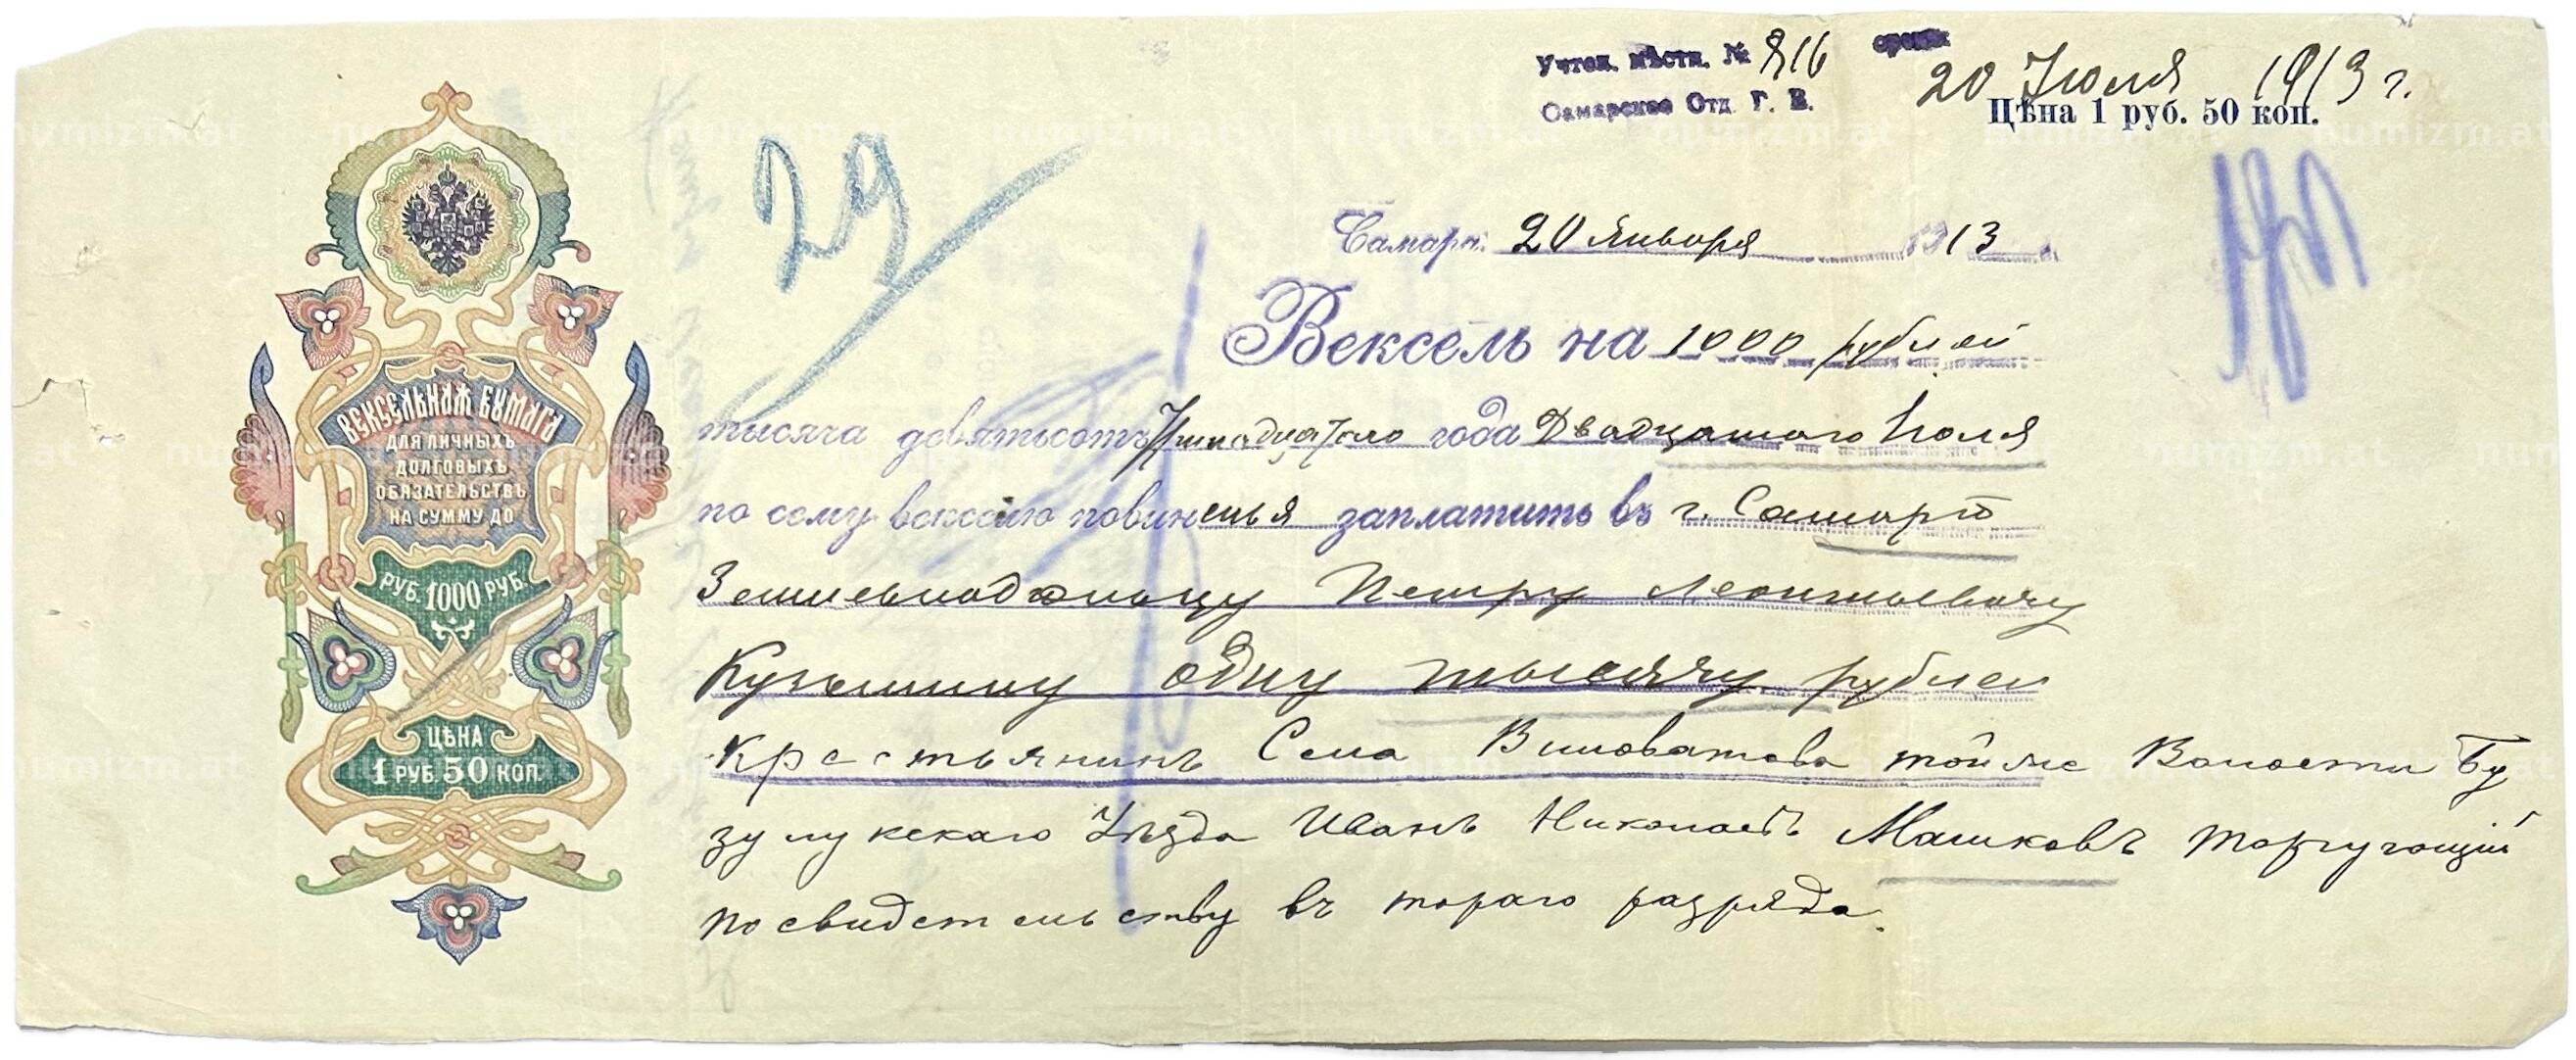 Учтен. мѣстн. № 816 срокъ
20 Іюля 1913 г.
Самарское Отд. Г. Б.
Цѣна 1 руб. 50 коп.
29
Самара. 20 Января 1913
Вексель на 1000 рублей
тысяча девятьсотъ тринадцатаго года Двадцатаго Іюля
по сему векселю повиненъ я заплатить въ г. Самарѣ
Землевладѣльцу Петру Леонтьевичу
Кузьмину одну тысячу рублей
крестьянинъ Села Виловатова той же Волости Бу
зулукскаго Уѣзда Иванъ Николаевъ Машковъ торгующій
по свидетельству второго разряда.
ВЕКСЕЛЬНАЯ БУМАГА
ДЛЯ ЛИЧНЫХЪ
ДОЛГОВЫХЪ
ОБЯЗАТЕЛЬСТВЪ
НА СУММУ ДО
РУБ. 1000 РУБ.
ЦѢНА
1 РУБ. 50 КОП.
numizm.at